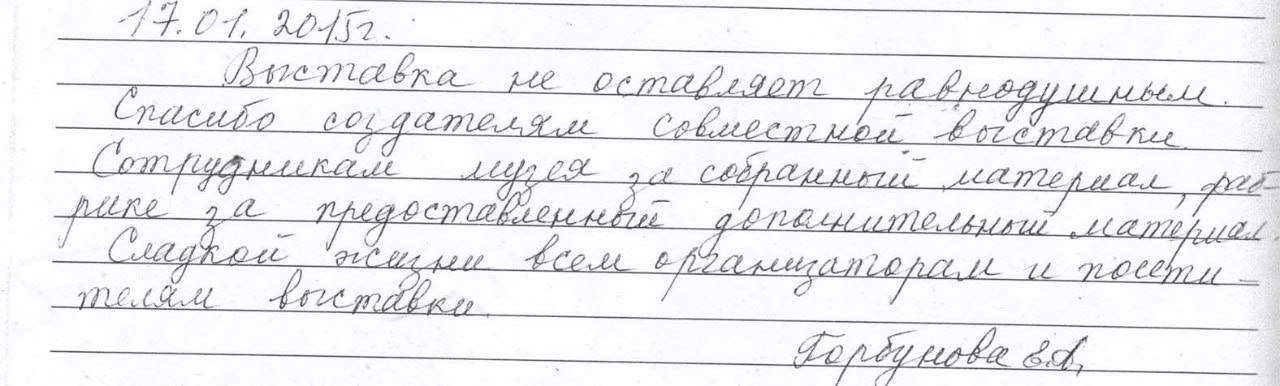 17.01.2015г.
Выставка не оставляет равнодушным.
Спасибо создателям совместной выставки
Сотрудникам музея за собранный материал, фаб-
рике за предоставленный дополнительный материал.
Сладкой жизни всем организаторам и посети-
телям выставки.
Горбунова Е.А.